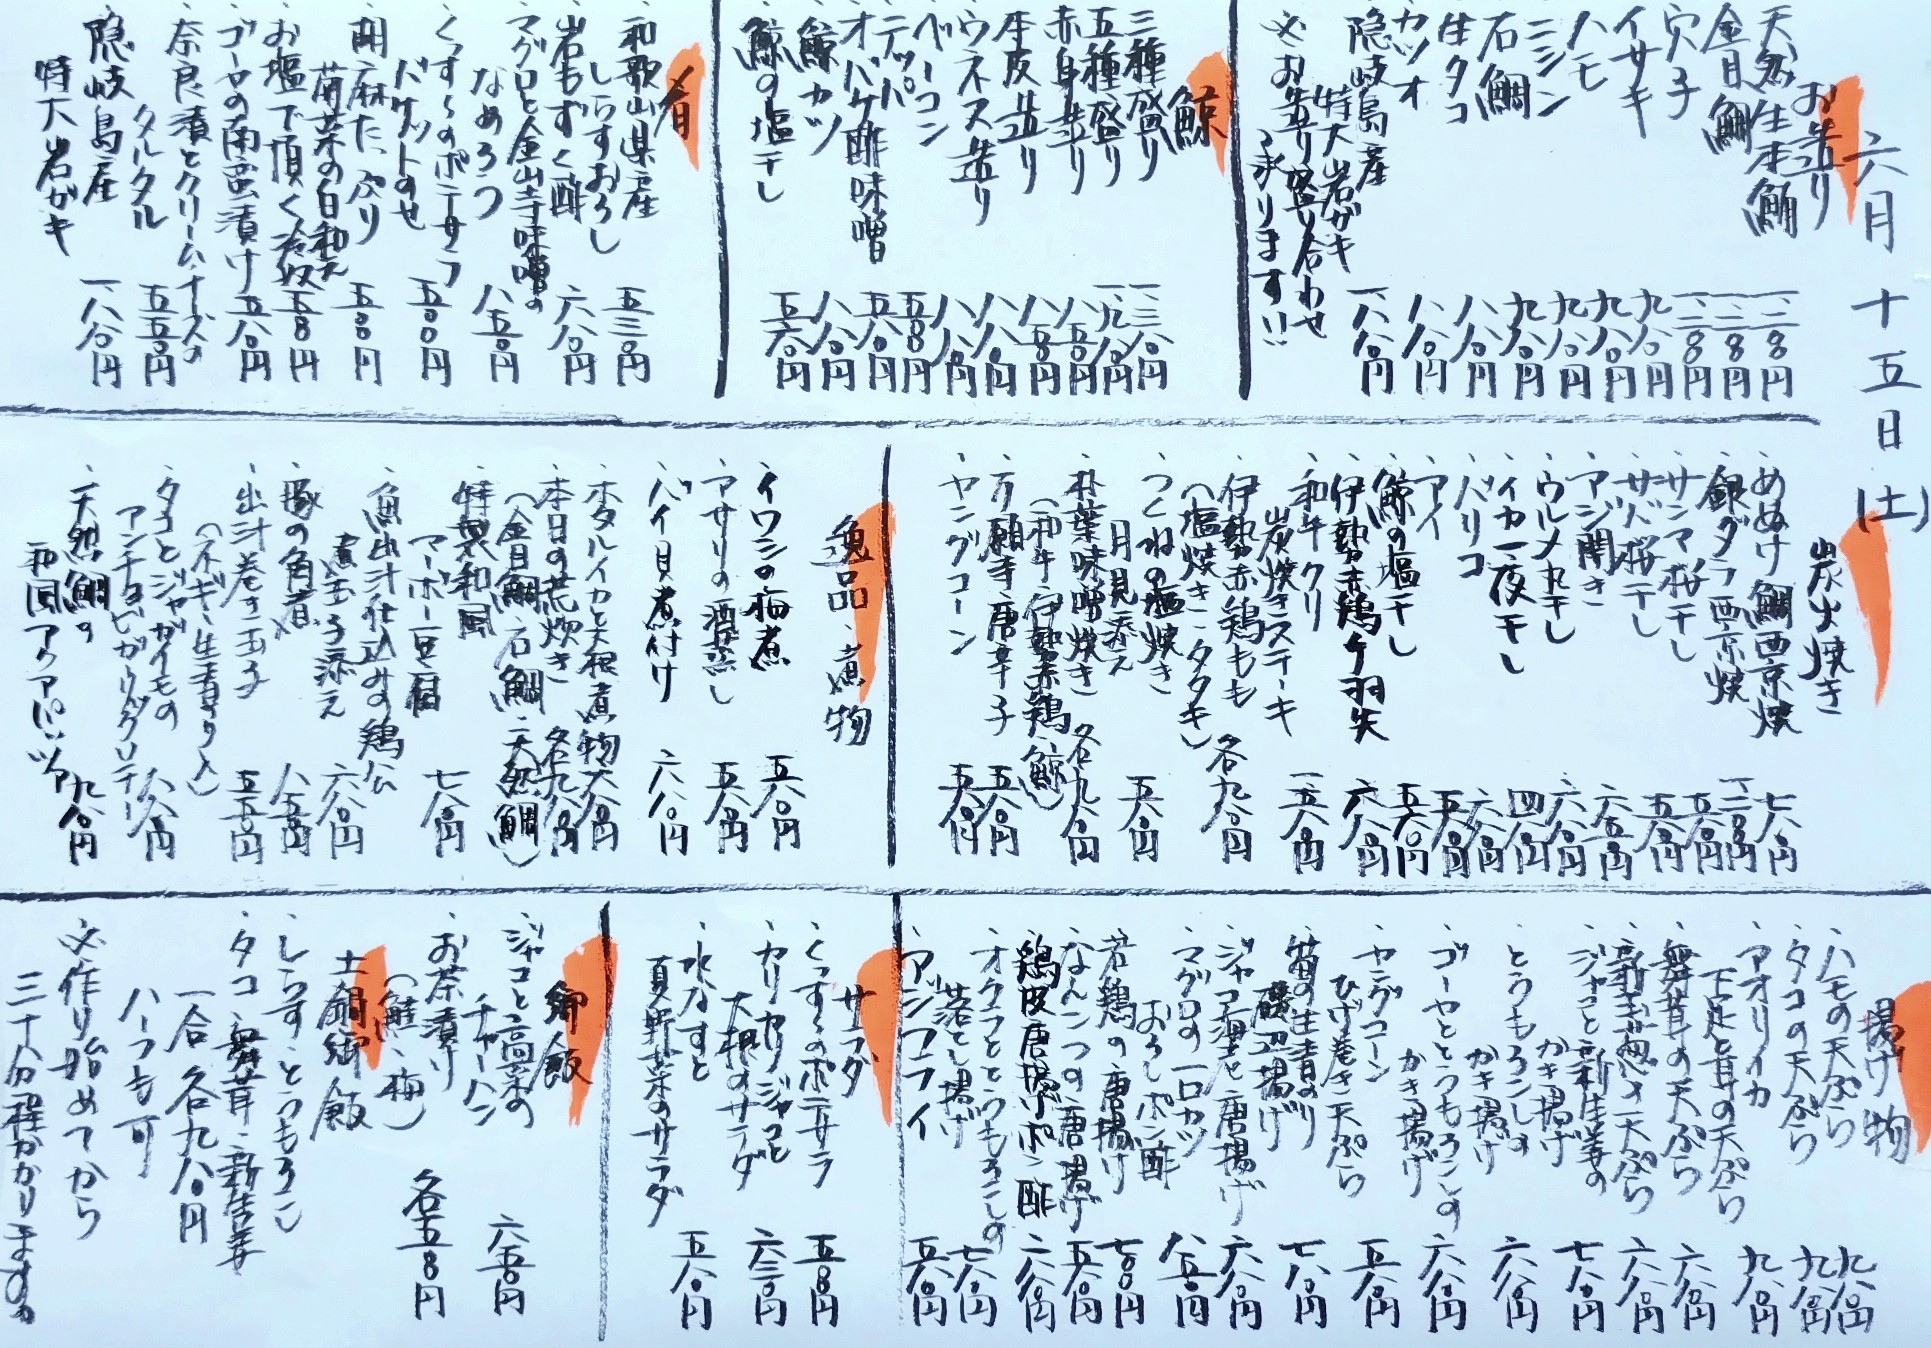 六月十五日(土)
お造り
、天然生本鮪 一、二八〇円
、金目鯛 一、二八〇円
、穴子 一、二八〇円
、イサキ 九八〇円
、ハモ 九八〇円
、ニシン 九八〇円
、石鯛 九八〇円
、生タコ 八八〇円
、カツオ 八八〇円
、隠岐島産
特大岩がキ 一、八八〇円
お造り盛り合わせ
承ります!!
鯨
、三種盛り 一、三八〇円
、五種盛り 一、九八〇円
、赤身造り 八五〇円
、本皮造り 八五〇円
、ウネス造り 八八〇円
、ベーコン 八八〇円
、テッパ 五八〇円
、オバケ酢味噌 五八〇円
、鯨カツ 八八〇円
、鯨の塩干し 五八〇円
肴
、和歌山県産
しらすおろし 五三〇円
、岩もずく酢 六八〇円
、マグロと金山寺味噌の
なめろう 八五〇円
、くずしのポテサラ
バゲットのせ 五八〇円
、胡麻たっぷり
菊菜の白和え 五八〇円
、お塩で頂く冷奴 五五〇円
、ゴーヤの南蛮漬け 五八〇円
、奈良漬とクリームチーズの
タルタル 五五〇円
、隠岐島産
特大岩ガキ 一、八八〇円
炭火焼き
、めぬけ鯛西京焼 七八〇円
、銀ダラ西京焼 一、二八〇円
、サンマ桜干し 五八〇円
、サバ桜干し 五八〇円
、アジ開き 六五〇円
、ウルメ丸干し 六八〇円
、イカ一夜干し 四八〇円
、バリコ 六八〇円
、アイ 五八〇円
、鯨の塩干し 五八〇円
、伊勢赤鶏手羽先 六八〇円
、和牛クリ
炭焼きステーキ 一、五八〇円
、伊勢赤鶏もも
(塩焼き、タタキ) 各九八〇円
、つくねの塩焼き
月見添え 五八〇円
、朴葉味噌焼き
(和牛、伊勢赤鶏、鯨) 各九八〇円
、万願寺唐辛子 五八〇円
、ヤングコーン 五八〇円
逸品、煮物
、イワシの梅煮 五八〇円
、アサリの酒蒸し 五八〇円
、バイ貝煮付け 六八〇円
、ホタルイカと大根煮物 六八〇円
、本日の荒炊き 各九八〇円
(金目鯛、石鯛、天然鯛)
、特製和風
マーボー豆腐 七八〇円
、魚出汁仕込みの鶏公
煮玉子添え 六八〇円
、豚の角煮 八五〇円
、出汁巻き玉子
(ネギ、生青のり入) 五五〇円
、タコとジャガイモの
アンチョビガーリックソテー 八八〇円
、天然鯛の
和風アクアパッツァ 九八〇円
揚げ物
、ハモの天ぷら 九八〇円
、タコの天ぷら 九八〇円
、アオリイカ
下足と茸の天ぷら 九八〇円
、舞茸の天ぷら 六八〇円
、新玉葱の天ぷら 六八〇円
、ジャコと新生姜の
かき揚げ 七八〇円
、とうもろこしの
かき揚げ 六八〇円
、ゴーヤととうもろこしの
かき揚げ 六八〇円
、ヤングコーン
ひげ巻き天ぷら 五八〇円
、筍の生青のり
磯辺揚げ 七八〇円
、ジャコ海老唐揚げ 六八〇円
、マグロの一口カツ
おろしポン酢 八五〇円
、若鶏の唐揚げ 七八〇円
、なんこつの唐揚げ 五八〇円
、鶏皮唐揚げポン酢 六八〇円
、オクラととうもろこしの
落とし揚げ 七八〇円
、アジフライ 五八〇円
サラダ
、くずしのポテサラ 五八〇円
、カリカリジャコと
大根のサラダ 六三〇円
、水なすと
夏野菜のサラダ 五八〇円
御飯
、ジャコと高菜の
チャーハン 六五〇円
、お茶漬け
(鮭、梅) 各五五〇円
土鍋御飯
、しらす、とうもろこし
、タコ、舞茸、新生姜
一合各九八〇円
ハーフも可
作り始めてから
三十分程かかります。